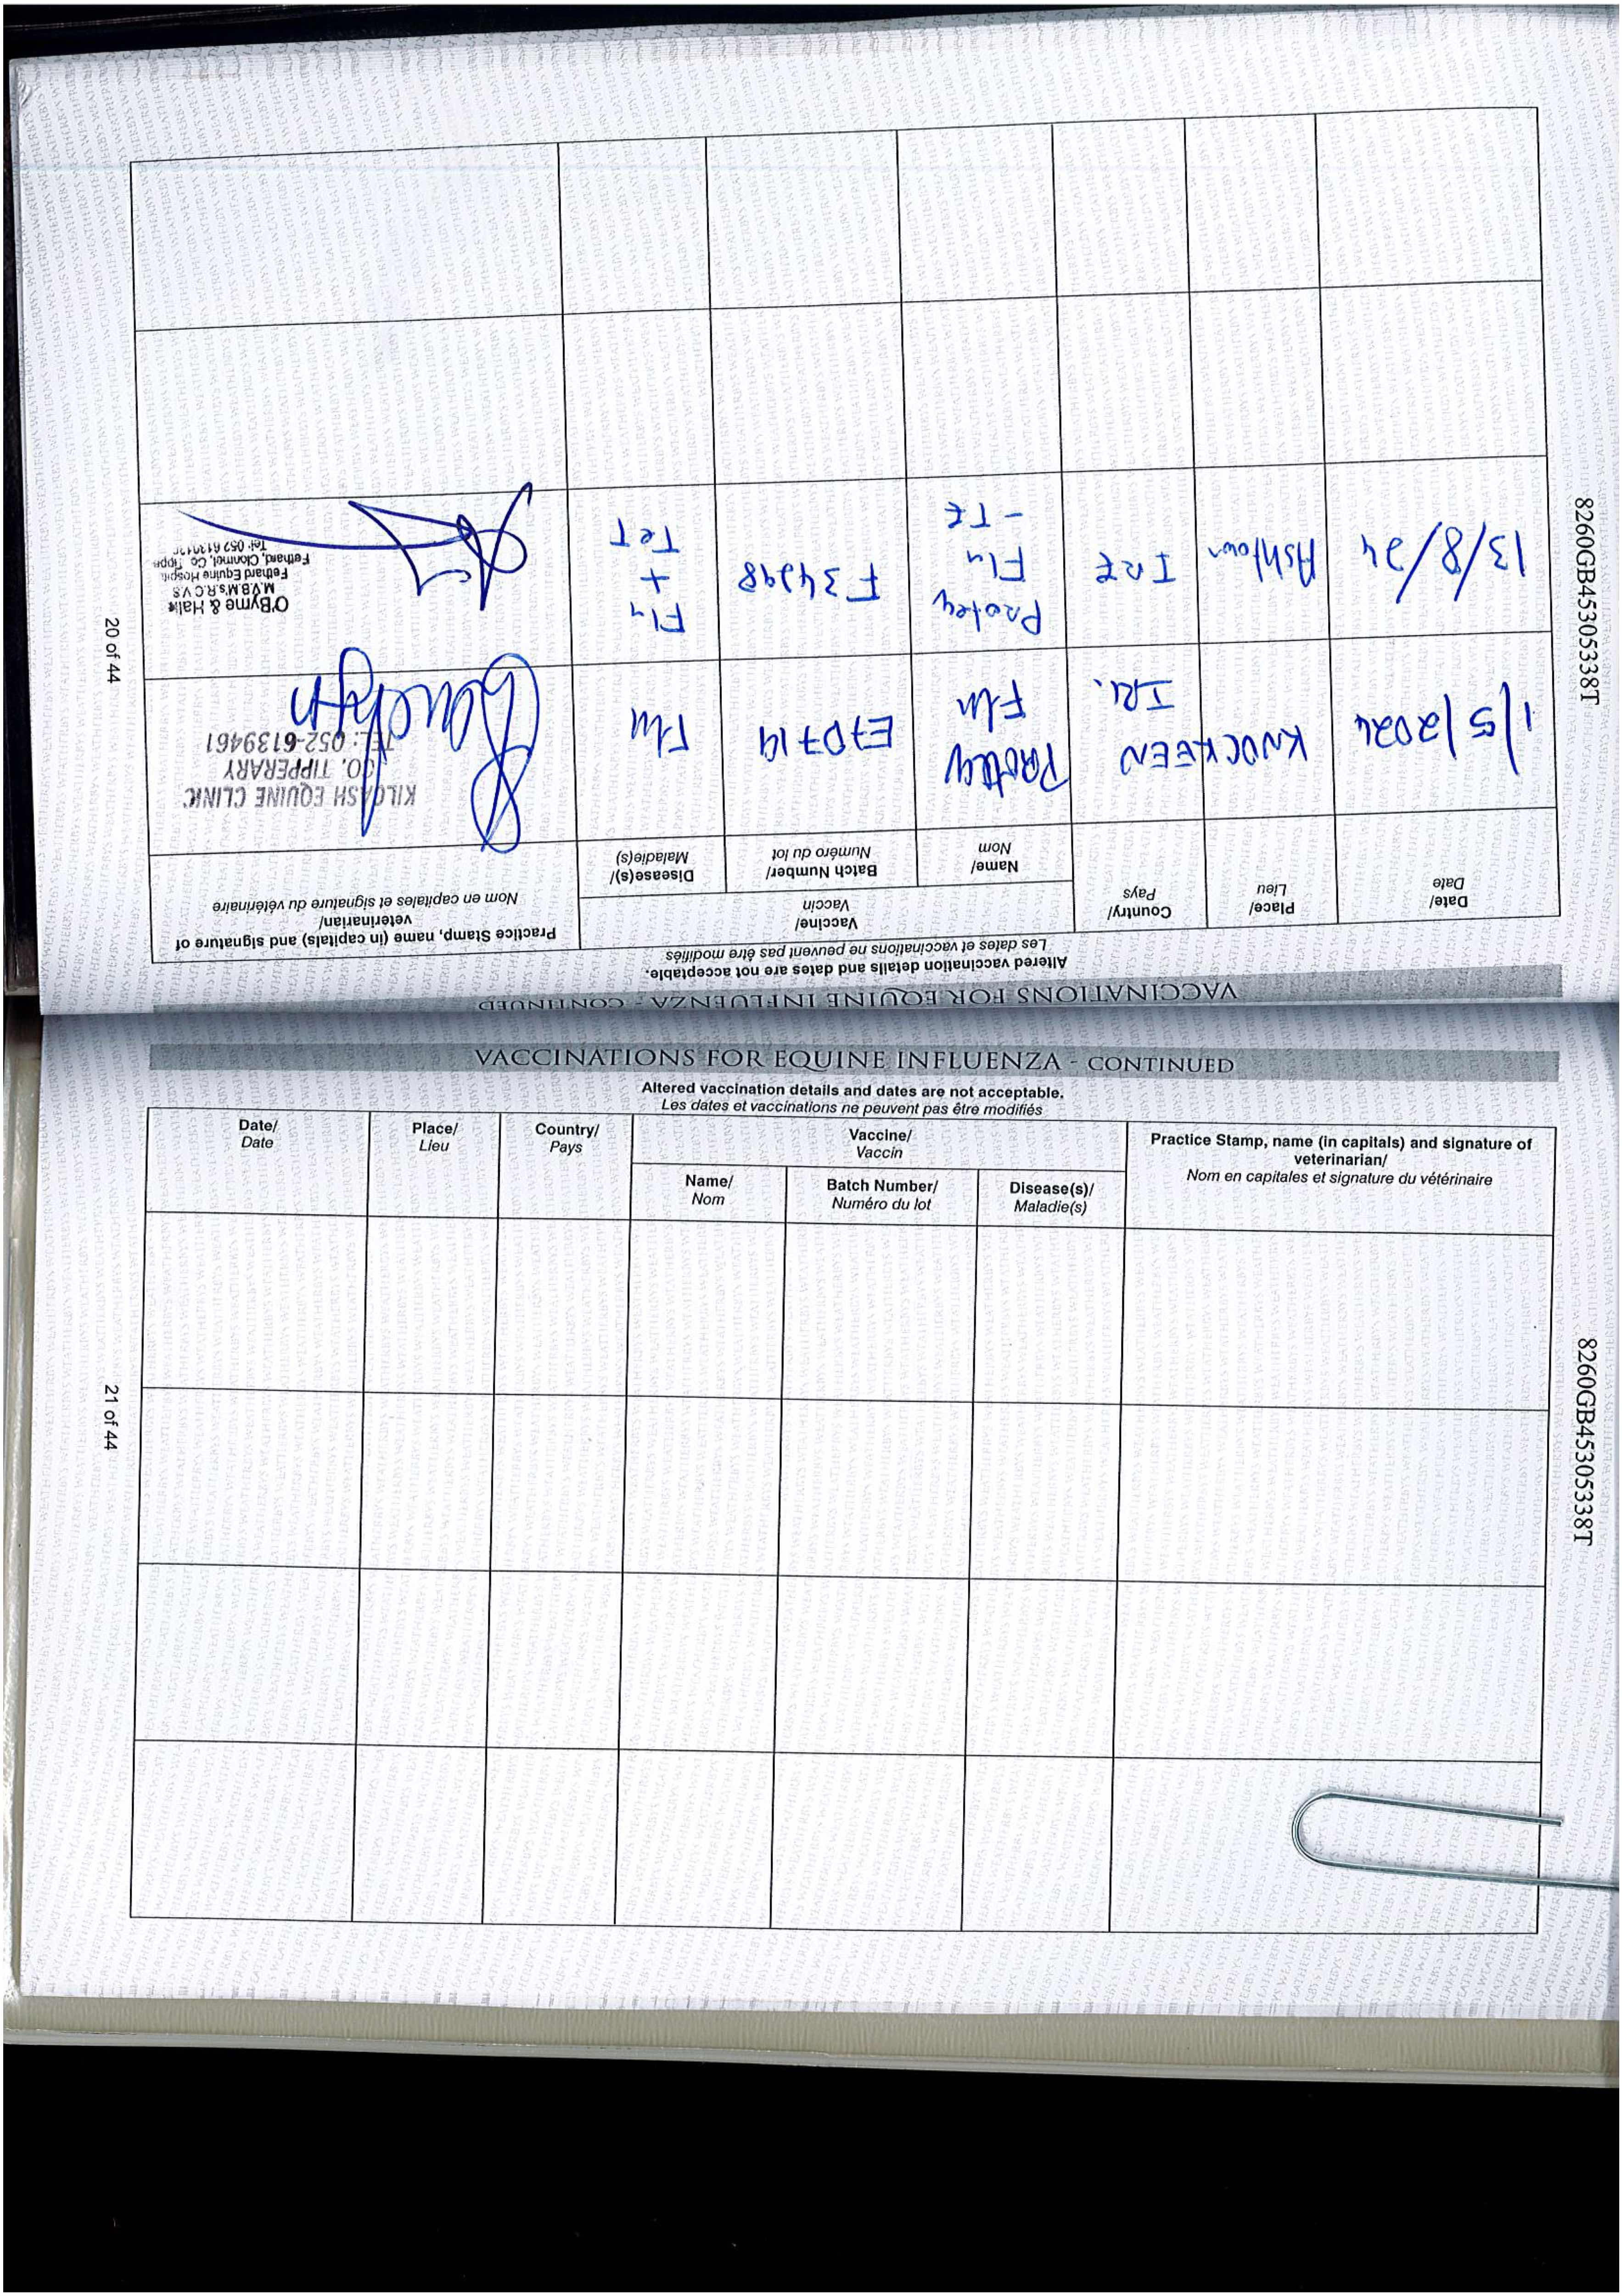 VACCINATIONS FOR EQUINE INFLUENZA - CONTINUED
Altered vaccination details and dates are not acceptable.
Les dates et vaccinations ne peuvent pas être modifiés
Date/
Date
Place/
Lieu
Country/
Pays
Vaccine/
Vaccin
Name/
Nom
Batch Number/
Numéro du lot
Disease(s)/
Maladie(s)
Practice Stamp, name (in capitals) and signature of
veterinarian/
Nom en capitales et signature du vétérinaire
1/5/2024
KNOCKEEN
IRL.
Proteq
Flu
E70719
Flu
KILCASH EQUINE CLINIC
CO. TIPPERARY
TEL: 052-6139461
13/8/24
Ashtown
IRE
Proteq
Flu
-TE
F34298
Flu
+
TeT
O'Byrne &
M.V.B.M's.R.C.V.S
Fethard Equine
Fethard, Clonmel, Co.
Tel: 052
20 of 44
8260GB45305338T
VACCINATIONS FOR EQUINE INFLUENZA - CONTINUED
Altered vaccination details and dates are not acceptable.
Les dates et vaccinations ne peuvent pas être modifiés
Date/
Date
Place/
Lieu
Country/
Pays
Vaccine/
Vaccin
Name/
Nom
Batch Number/
Numéro du lot
Disease(s)/
Maladie(s)
Practice Stamp, name (in capitals) and signature of
veterinarian/
Nom en capitales et signature du vétérinaire
21 of 44
8260GB45305338T